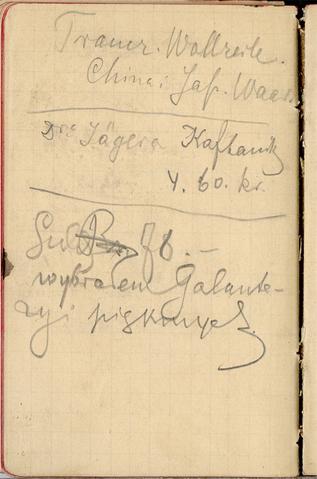 Trauer. Wollzeile.
China: Jap. Waar.
Dra Jägera Kaftanik
4. 60. kr.
78. —
wybrałem Galante-
ryi pięknych.